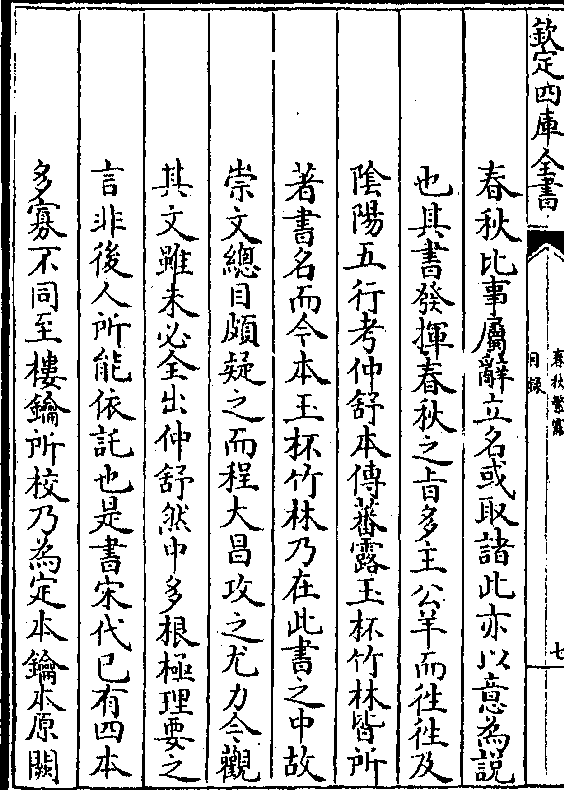 欽定四庫全書
春秋繁露
目録
七
春秋比事屬辭立名或取諸此亦以意為説
也其書發揮春秋之旨多主公羊而徃徃及
陰陽五行考仲舒本傳蕃露玉杯竹林皆所
著書名而今本玉杯竹林乃在此書之中故
崇文總目頗疑之而程大昌攻之尤力今觀
其文雖未必全出仲舒然中多根極理要之
言非後人所能依託也是書宋代已有四本
多寡不同至樓鑰所校乃為定本鑰本原闕